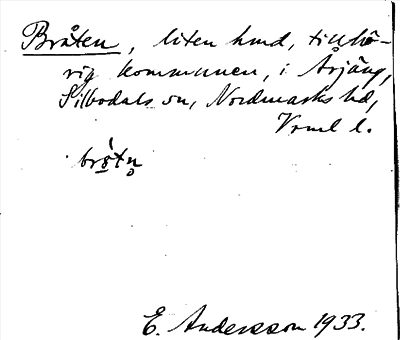 Bråten, liten lund, tillhö-
rig kommunen, i Årjäng,
Silbodals sn, Nordmarks hd,
Vrml l.
brǻtn̥
E. Andersson 1933.